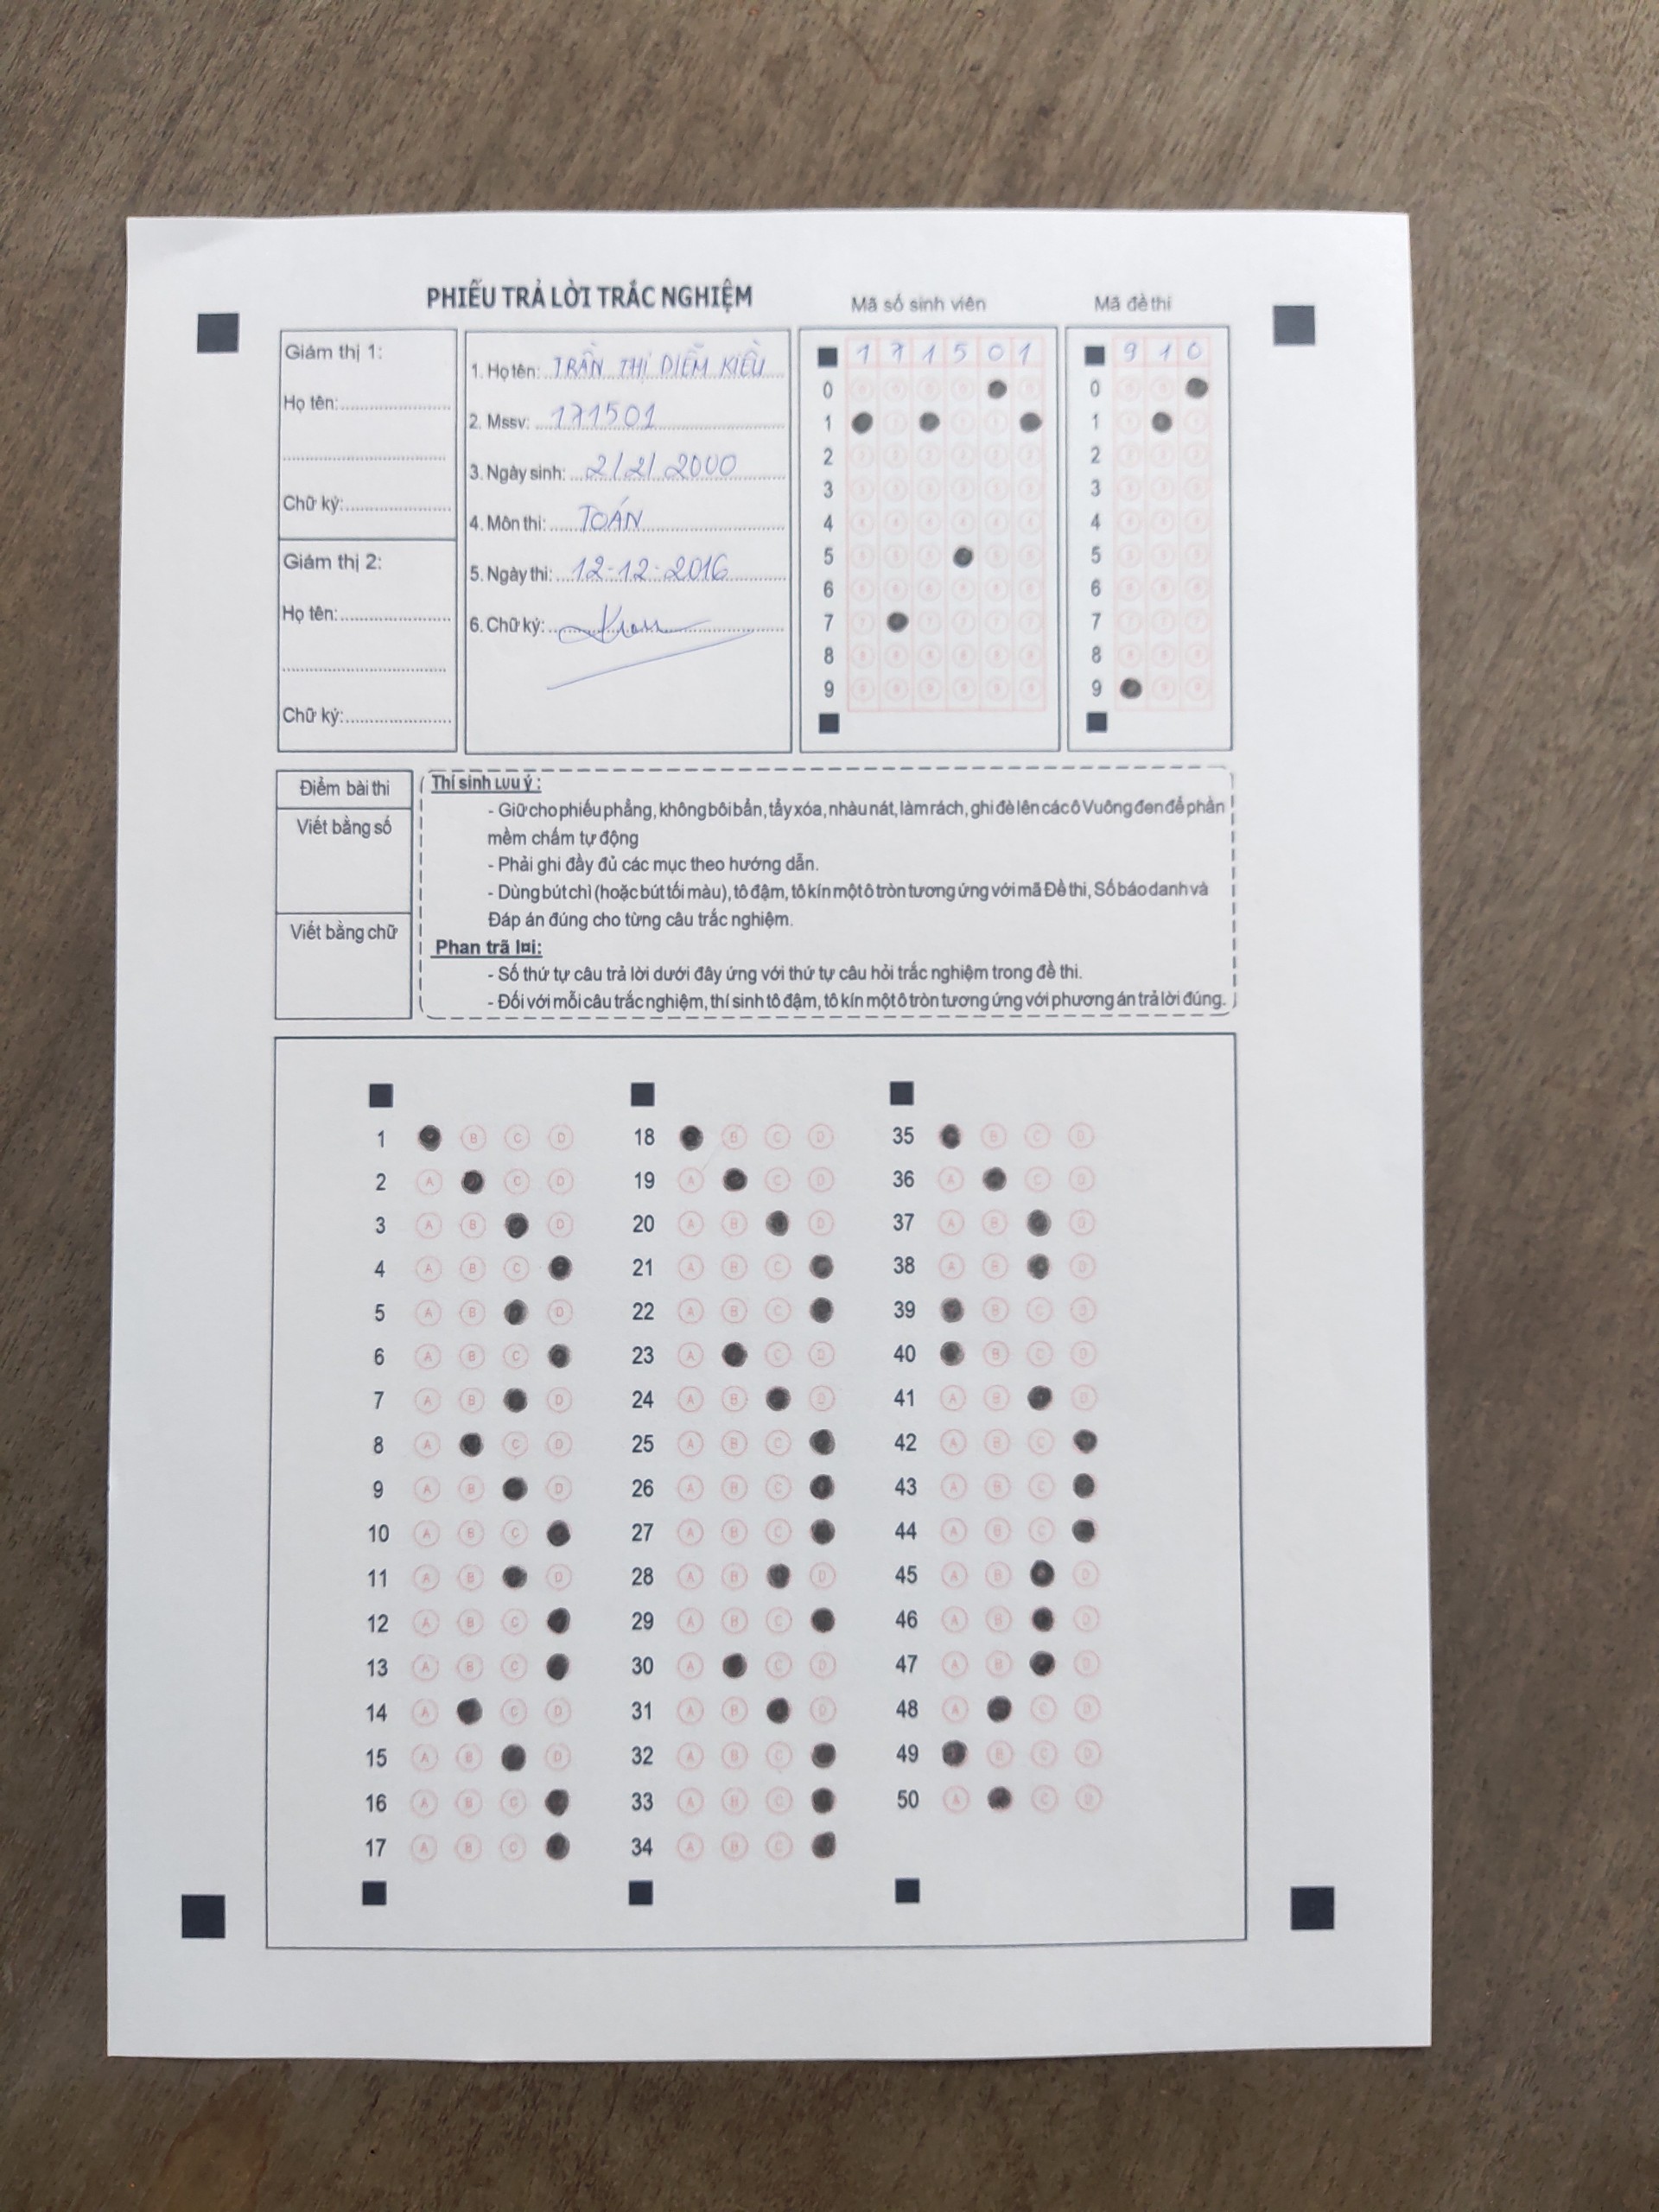 PHIẾU TRẢ LỜI TRẮC NGHIỆM
Mã số sinh viên
Mã đề thi
Giám thị 1:
Họ tên:
Chữ ký:
Giám thị 2:
Họ tên:
Chữ ký:
1. Họ tên: TRẦN THỊ DIỄM KIỀU
2. Mssv: 171501
3. Ngày sinh: 2/2/2000
4. Môn thi: TOÁN
5. Ngày thi: 12-12-2016
6. Chữ ký:
1 7 1 5 0 1
0
1
2
3
4
5
6
7
8
9
9 1 0
0
1
2
3
4
5
6
7
8
9
Điểm bài thi
Viết bằng số
Viết bằng chữ
Thí sinh Lưu ý :
- Giữ cho phiếu phẳng, không bôi bẩn, tẩy xóa, nhàu nát, làm rách, ghi đè lên các ô Vuông đen để phần
mềm chấm tự động
- Phải ghi đầy đủ các mục theo hướng dẫn.
- Dùng bút chì (hoặc bút tối màu), tô đậm, tô kín một ô tròn tương ứng với mã Đề thi, Số báo danh và
Đáp án đúng cho từng câu trắc nghiệm.
Phan trã l¤i:
- Số thứ tự câu trả lời dưới đây ứng với thứ tự câu hỏi trắc nghiệm trong đề thi.
- Đối với mỗi câu trắc nghiệm, thí sinh tô đậm, tô kín một ô tròn tương ứng với phương án trả lời đúng.
1 B C D
2 A C D
3 A B D
4 A B C
5 A B D
6 A B C
7 A B D
8 A C D
9 A B D
10 A B C
11 A B D
12 A B C
13 A B C
14 A C D
15 A B D
16 A B C
17 A B C
18 B C D
19 A C D
20 A B D
21 A B C
22 A B C
23 A C D
24 A B D
25 A B C
26 A B C
27 A B C
28 A B D
29 A B C
30 A C D
31 A B D
32 A B C
33 A B C
34 A B C
35 B C D
36 A C D
37 A B D
38 A B D
39 B C D
40 B C D
41 A B D
42 A B C
43 A B C
44 A B C
45 A B D
46 A B D
47 A B D
48 A C D
49 B C D
50 A C D